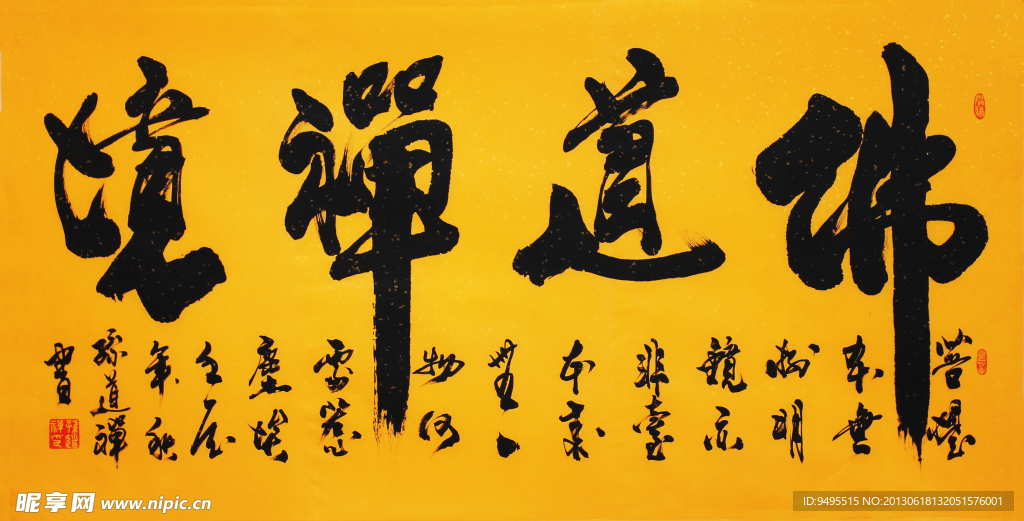 佛道禪境
菩提
本無
樹明
鏡亦
非臺
本來
無一
物何
處惹
塵埃
壬辰
年秋
孫道禪
書
昵享网 www.nipic.cn
ID:9495515 NO:20130618132051576001